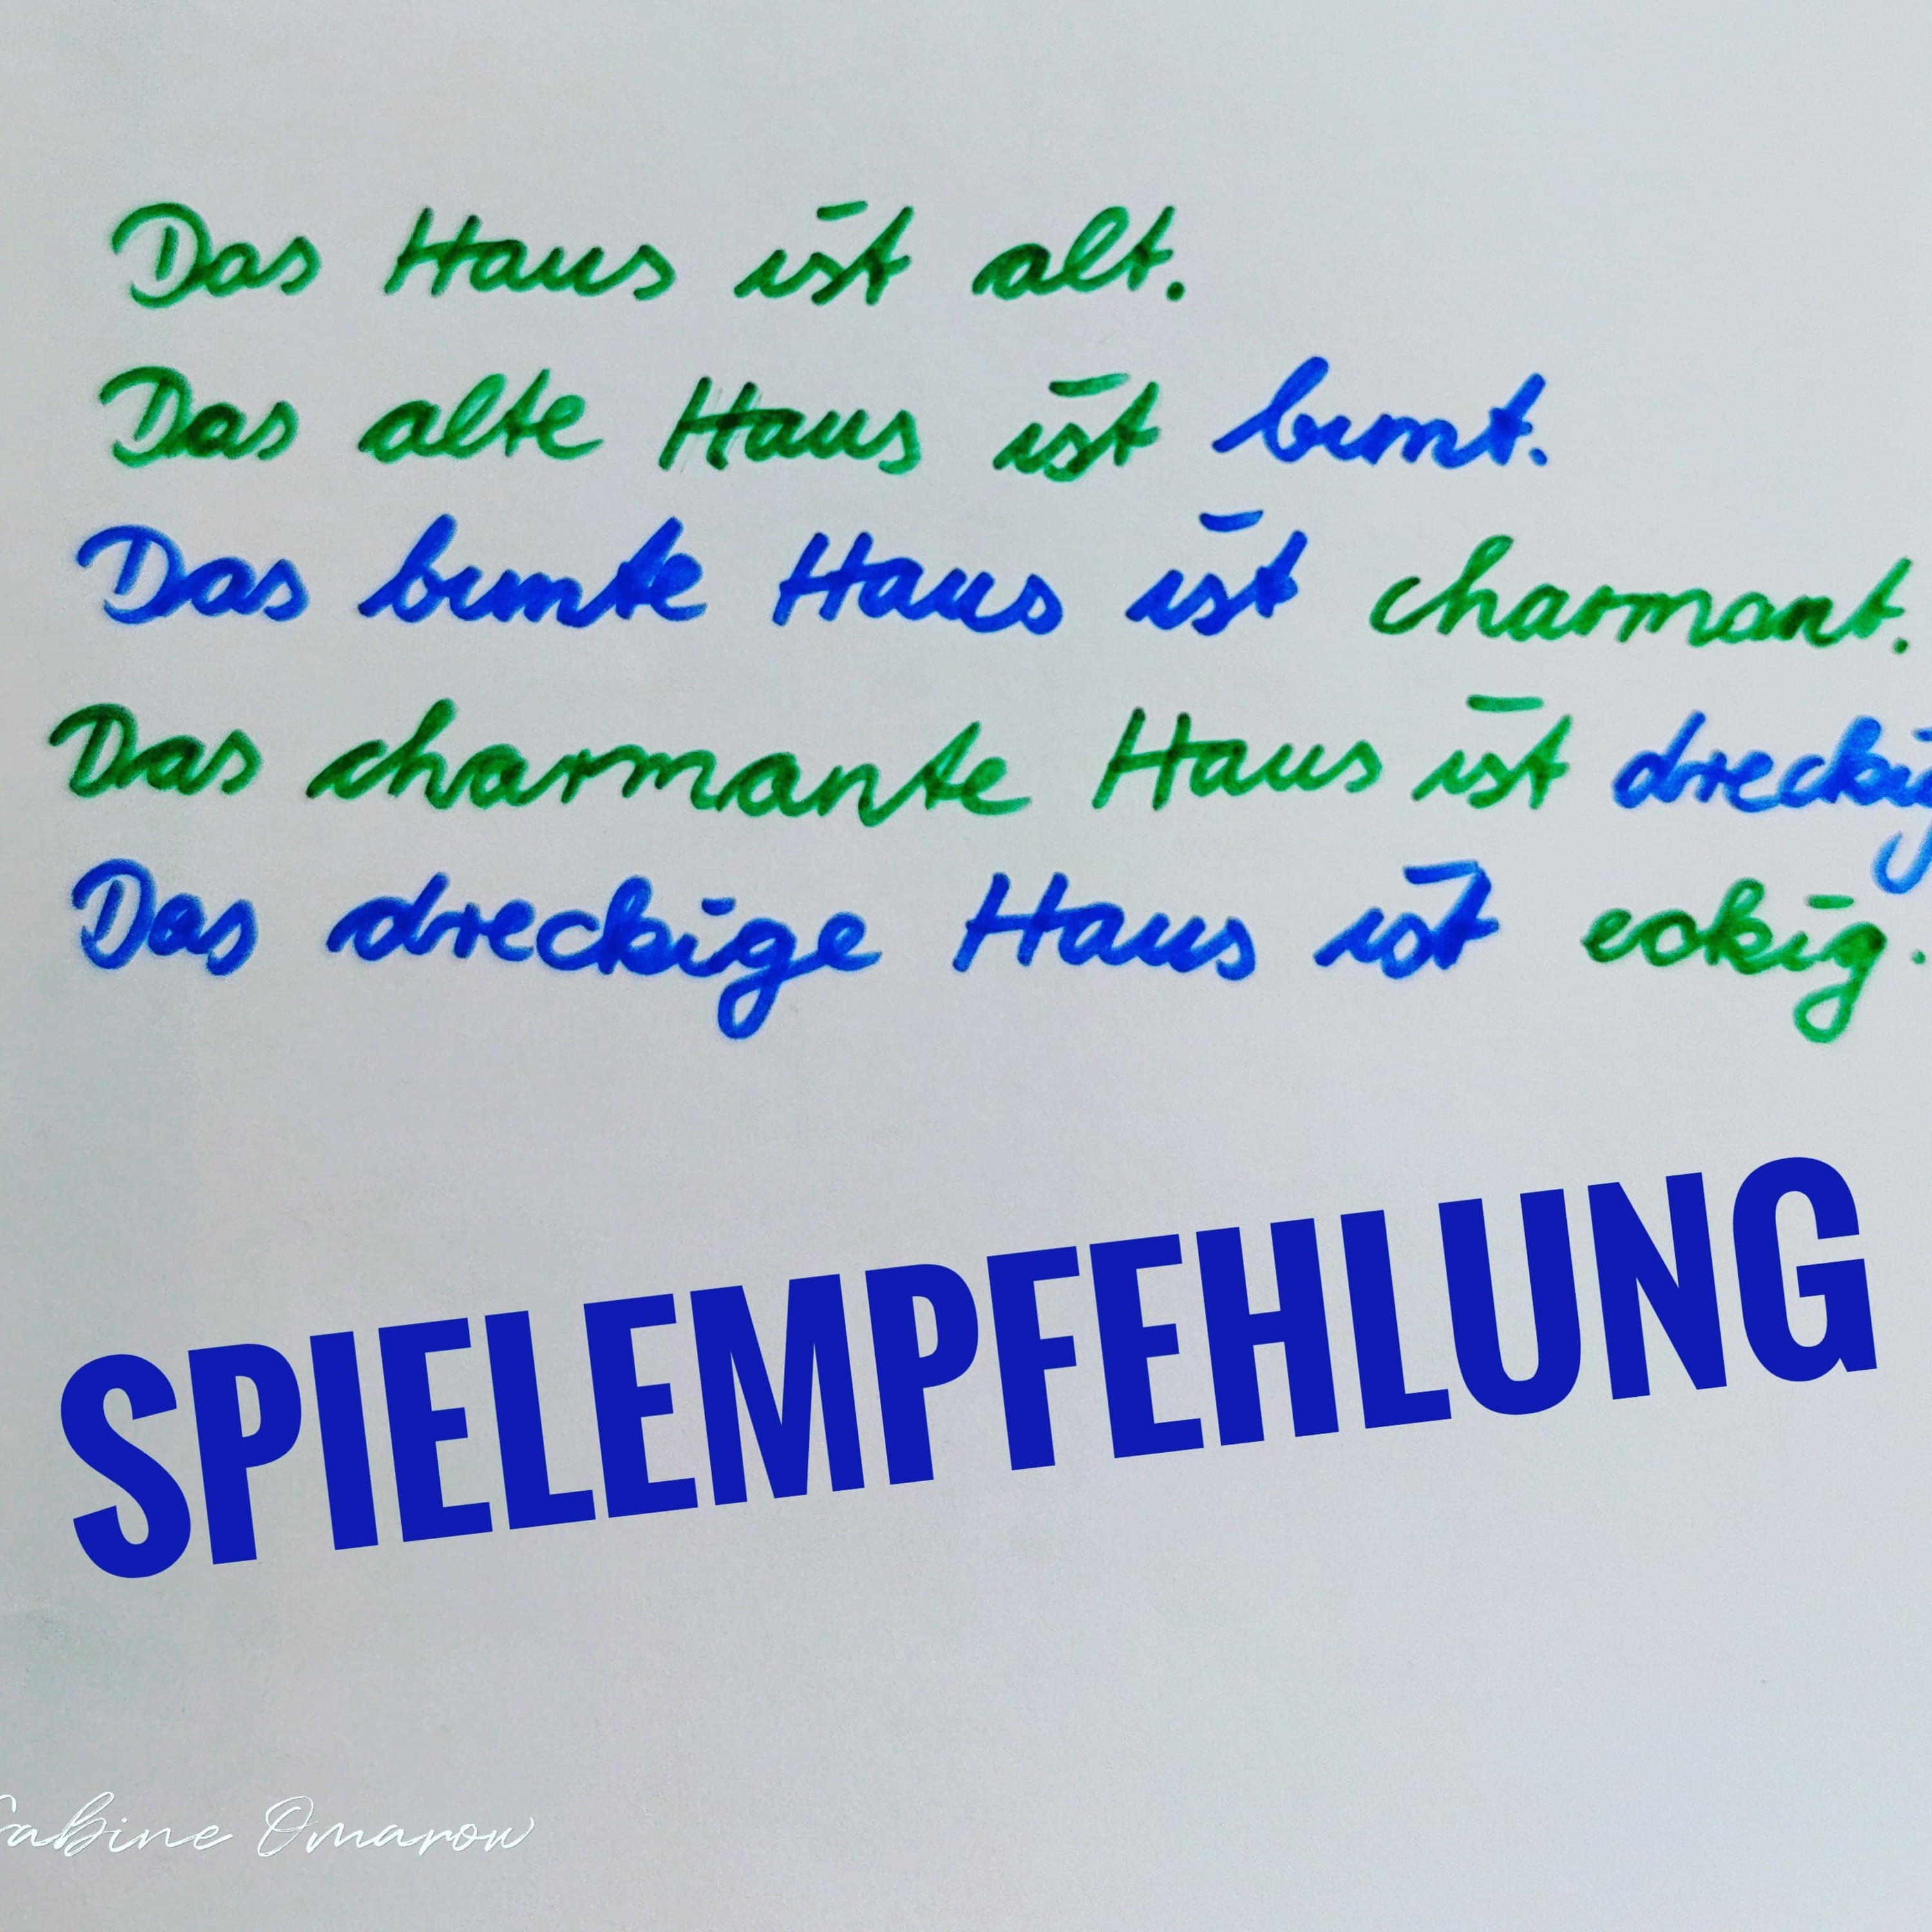 Das Haus ist alt.
Das alte Haus ist bunt.
Das bunte Haus ist charmant.
Das charmante Haus ist dreckig
Das dreckige Haus ist eckig.
SPIELEMPFEHLUNG
Sabine Omarow